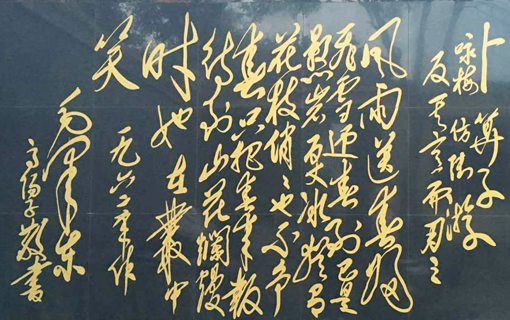 卜算子
咏梅 仿陆游
反其意而用之
风雨送春归
飞雪迎春到已是
悬岩更冰犹有
花枝俏〻也不争
春只把春来报
待到山花爛熳
时她在叢中
笑
一九六二年作
毛泽东
书